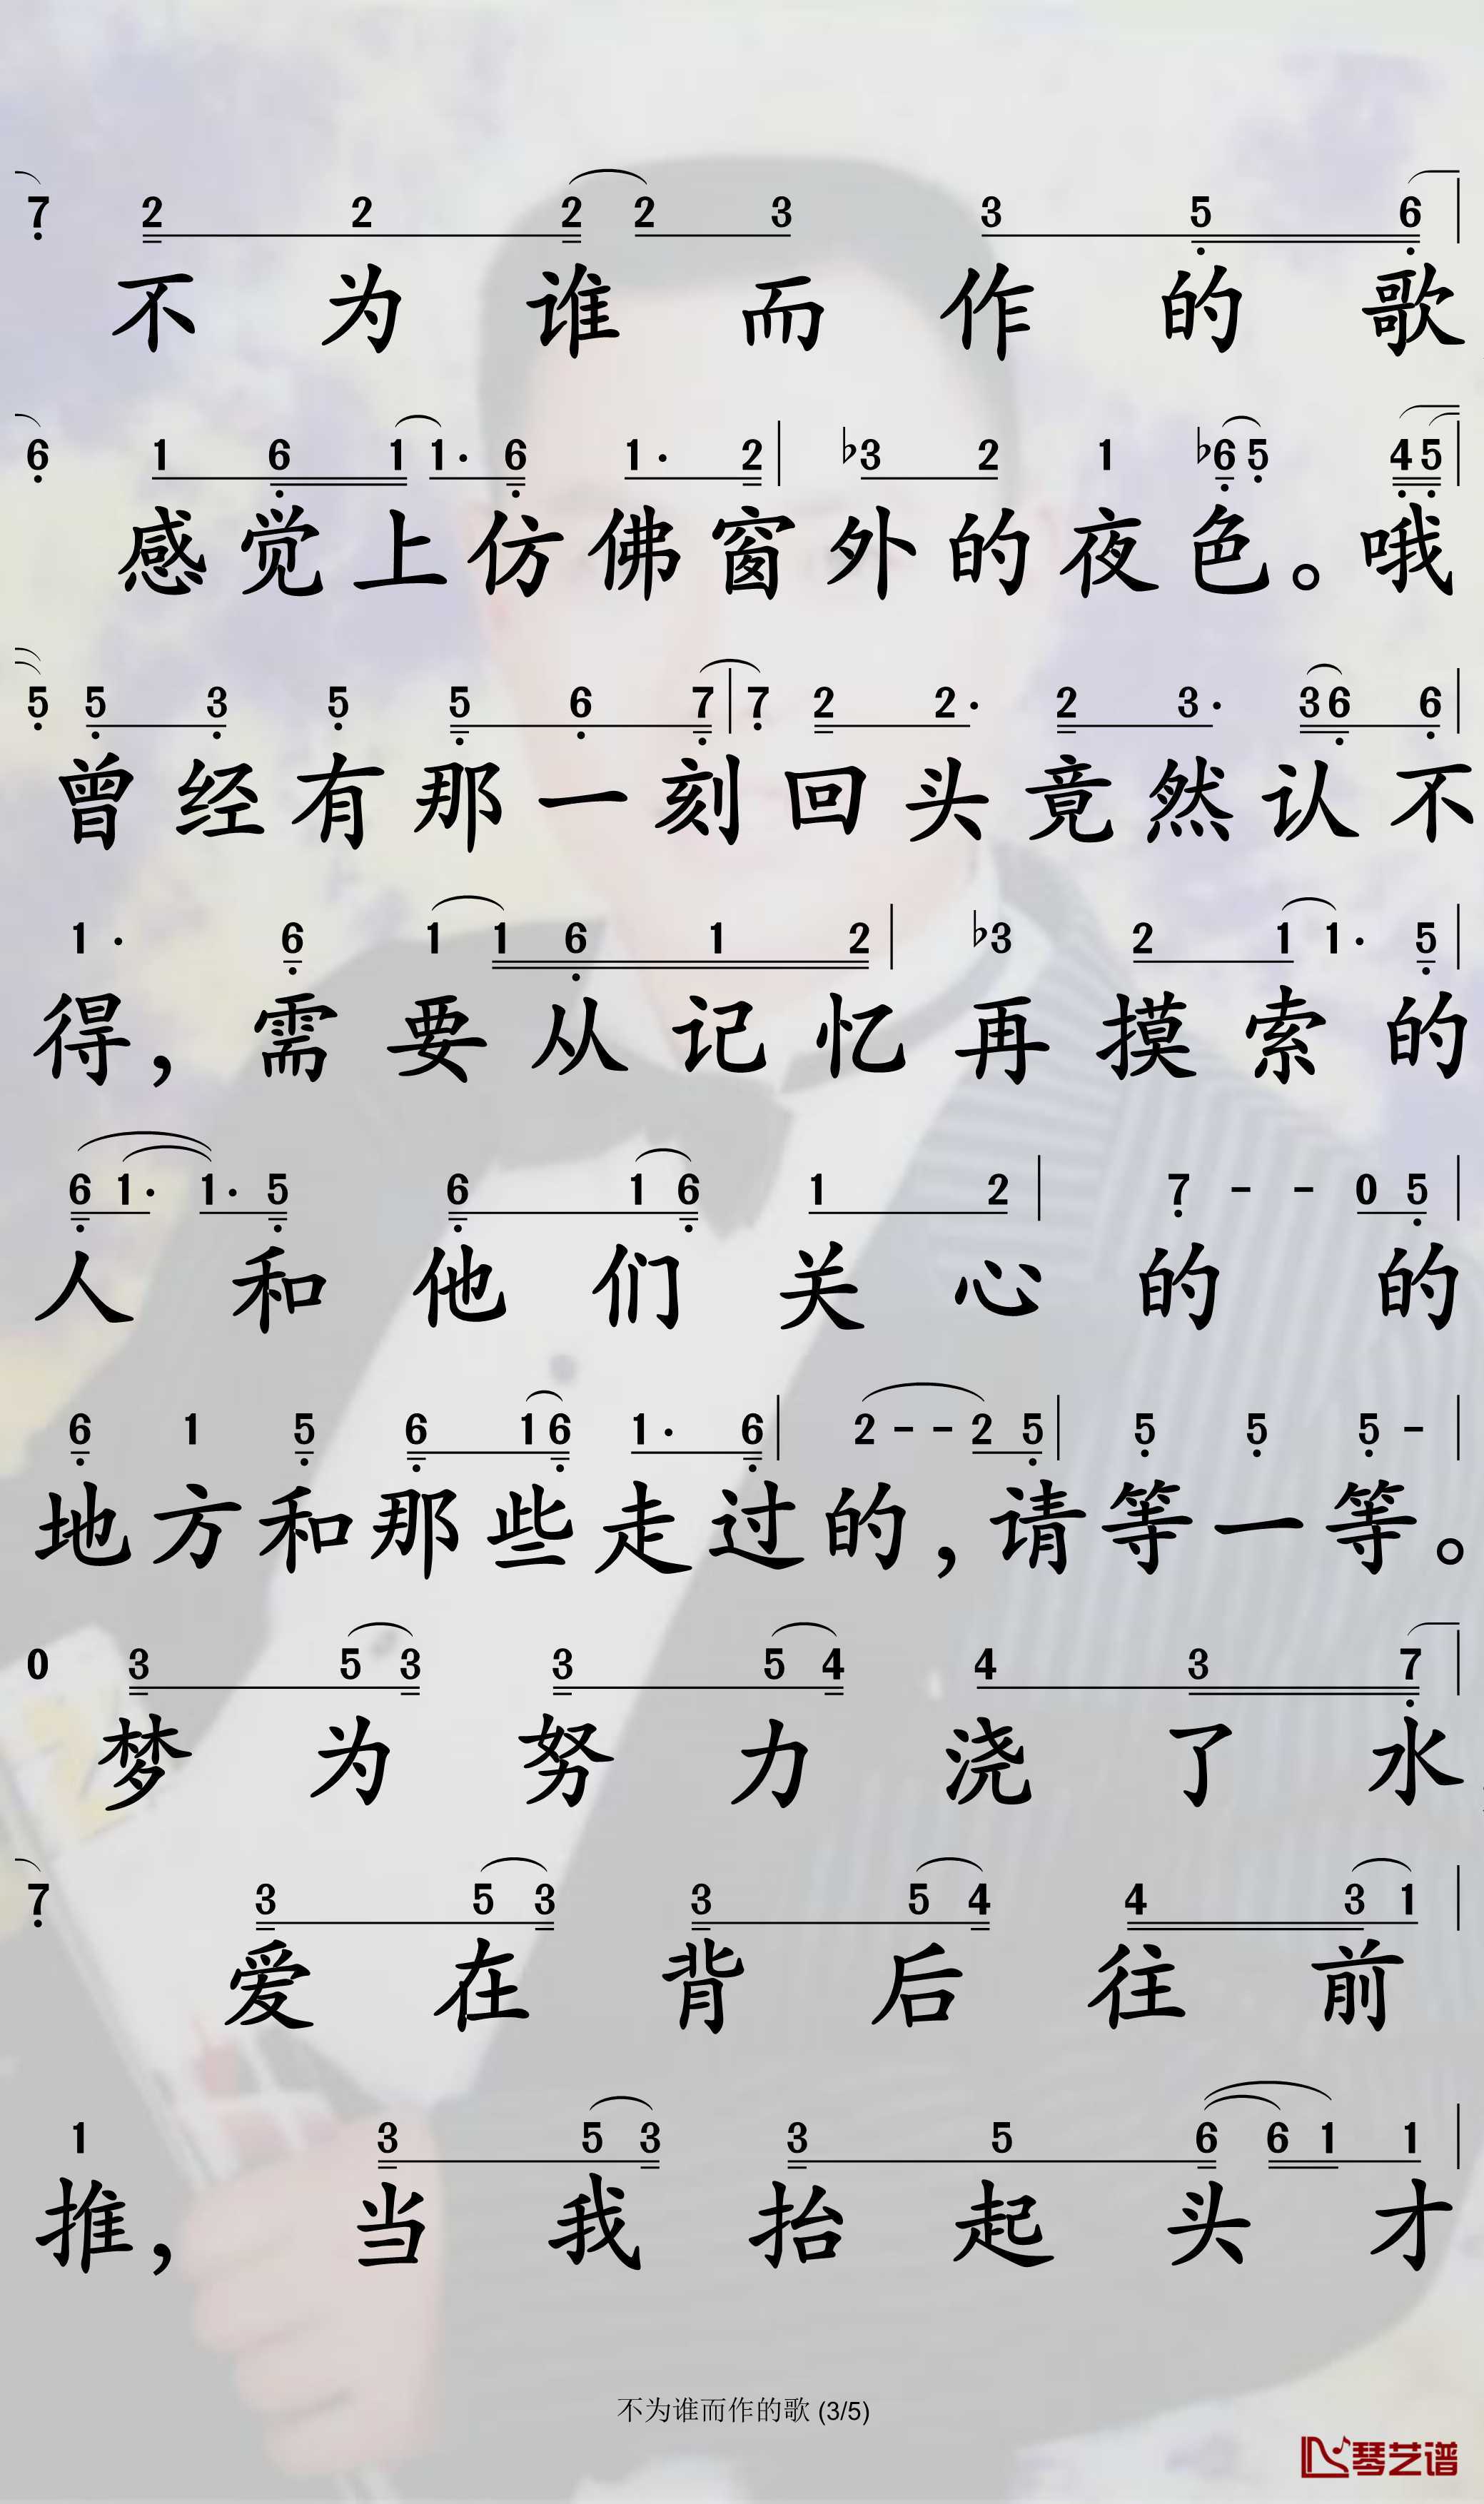 7 2 2 2 2 3 3 5 6
不为谁而作的歌
6 1 6 1 1· 6 1· 2 | ♭3 2 1 ♭6 5 4 5 |
感觉上仿佛窗外的夜色。哦
5 5 3 5 5 6 7 | 7 2 2· 2 3· 3 6 6 |
曾经有那一刻回头竟然认不
1· 6 1 1 6 1 2 | ♭3 2 1 1· 5 |
得，需要从记忆再摸索的
6 1· 1· 5 6 1 6 1 2 | 7 - - 0 5 |
人和他们关心的的
6 1 5 6 1 6 1· 6 | 2 - - 2 5 | 5 5 5 - |
地方和那些走过的，请等一等。
0 3 5 3 3 5 4 4 3 7 |
梦为努力浇了水
7 3 5 3 3 5 4 4 3 1 |
爱在背后往前
1 3 5 3 3 5 6 6 1 1 |
推，当我抬起头才
不为谁而作的歌 (3/5)
琴艺谱